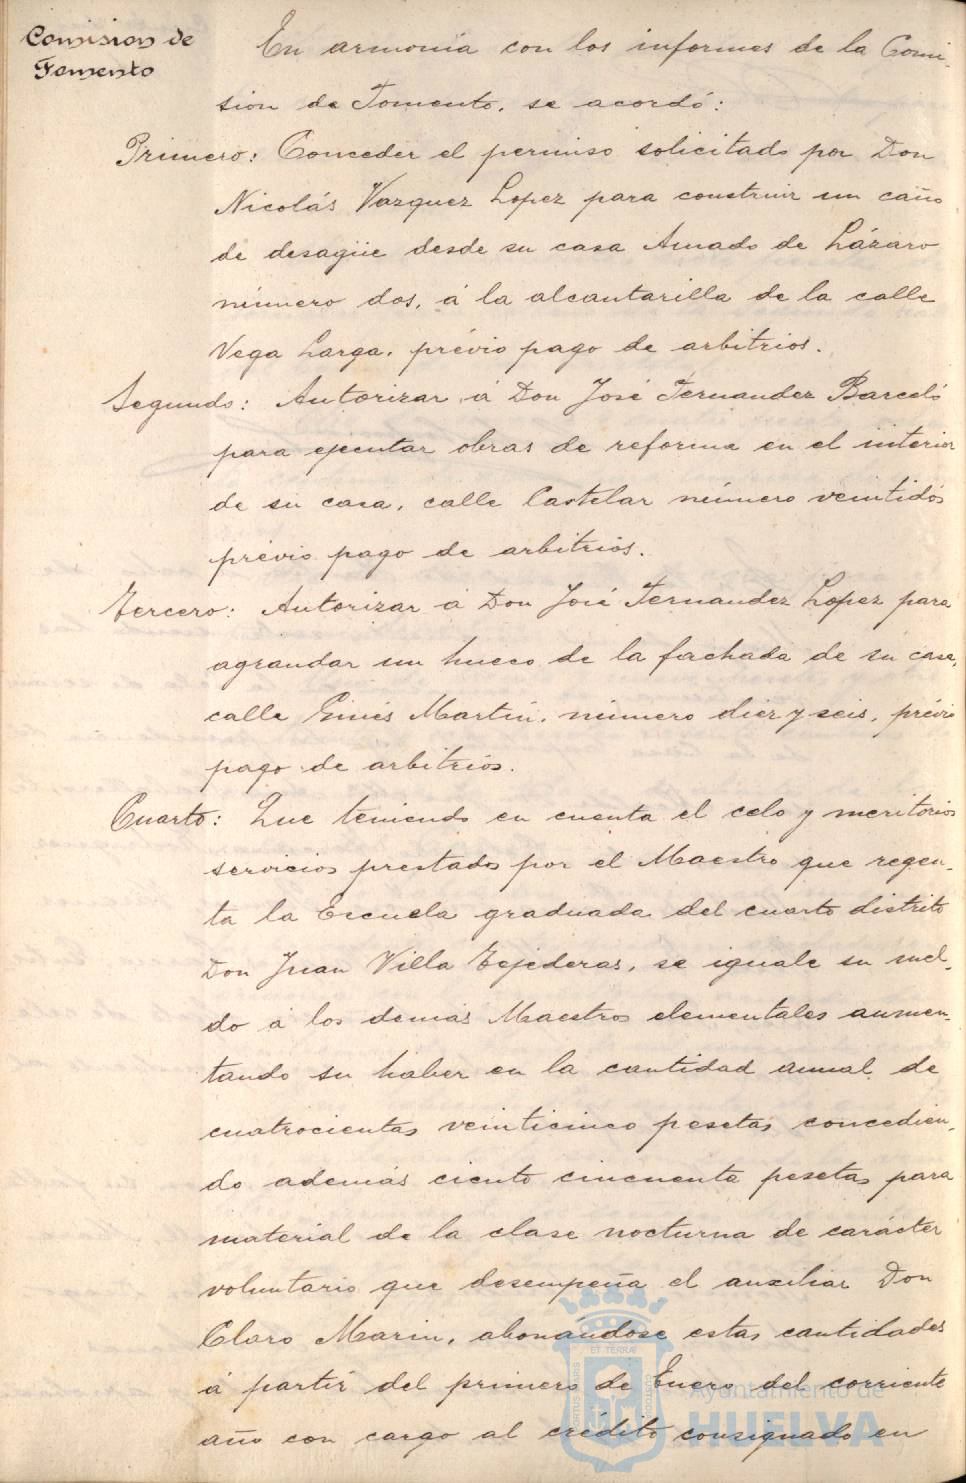 Comision de
Fomento
En armonía con los informes de la Comi-
sion de Fomento, se acordó:
Primero: Conceder el permiso solicitado por Don
Nicolás Vazquez Lopez para construir un caño
de desagüe desde su casa Amado de Lázaro
número dos, á la alcantarilla de la calle
Vega Larga, prévio pago de arbitrios.
Segundo: Autorizar á Don José Fernandez Barceló
para ejecutar obras de reforma en el interior
de su casa, calle Castelar número veintidós
prévio pago de arbitrios.
Tercero: Autorizar á Don José Fernandez Lopez para
agrandar un hueco de la fachada de su casa,
calle Ginés Martin, número diez y seis, prévio
pago de arbitrios.
Cuarto: Que teniendo en cuenta el celo y meritorios
servicios prestados por el Maestro que regen-
ta la Escuela graduada del cuarto distrito
Don Juan Villa Tejederas, se iguale su suel-
do á los demás Maestros elementales aumen-
tando su haber en la cantidad anual de
cuatrocientas veinticinco pesetas concedien-
do además ciento cincuenta pesetas para
material de la clase nocturna de carácter
voluntario que desempeña el auxiliar Don
Claro Marin, abonandose estas cantidades
á partir del primero de Enero del corriente
año con cargo al crédito consignado en
ET TERRÆ
PORTUS MARIS
CUSTODIA
Ayuntamiento de
HUELVA